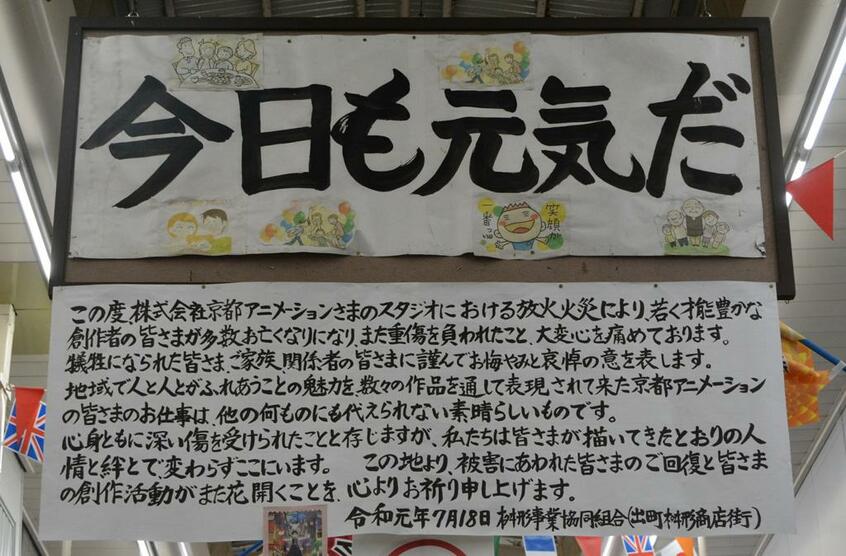 今日も元気だ
笑顔が
一番っ!!
この度、株式会社京都アニメーションさまのスタジオにおける放火火災により、若く才能豊かな
創作者の皆さまが多数お亡くなりになり、また重傷を負われたこと、大変心を痛めております。
犠牲になられた皆さま、ご家族、関係者の皆さまに謹んでお悔やみと哀悼の意を表します。
地域で人と人とがふれあうことの魅力を、数々の作品を通して表現されて来た京都アニメーション
の皆さまのお仕事は、他の何ものにも代えられない素晴らしいものです。
心身ともに深い傷を受けられたことと存じますが、私たちは皆さまが描いてきたとおりの人
情と絆とで変わらずここにいます。 この地より、被害にあわれた皆さまのご回復と皆さま
の創作活動がまた花開くことを、心よりお祈り申し上げます。
令和元年7月18日 桝形事業協同組合(出町桝形商店街)